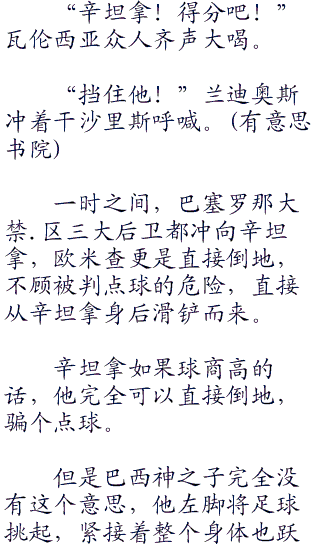 “辛坦拿！得分吧！”
瓦伦西亚众人齐声大喝。
“挡住他！”兰迪奥斯
冲着干沙里斯呼喊。(有意思
书院)
一时之间，巴塞罗那大
禁.区三大后卫都冲向辛坦
拿，欧米查更是直接倒地，
不顾被判点球的危险，直接
从辛坦拿身后滑铲而来。
辛坦拿如果球商高的
话，他完全可以直接倒地，
骗个点球。
但是巴西神之子完全没
有这个意思，他左脚将足球
挑起，紧接着整个身体也跃